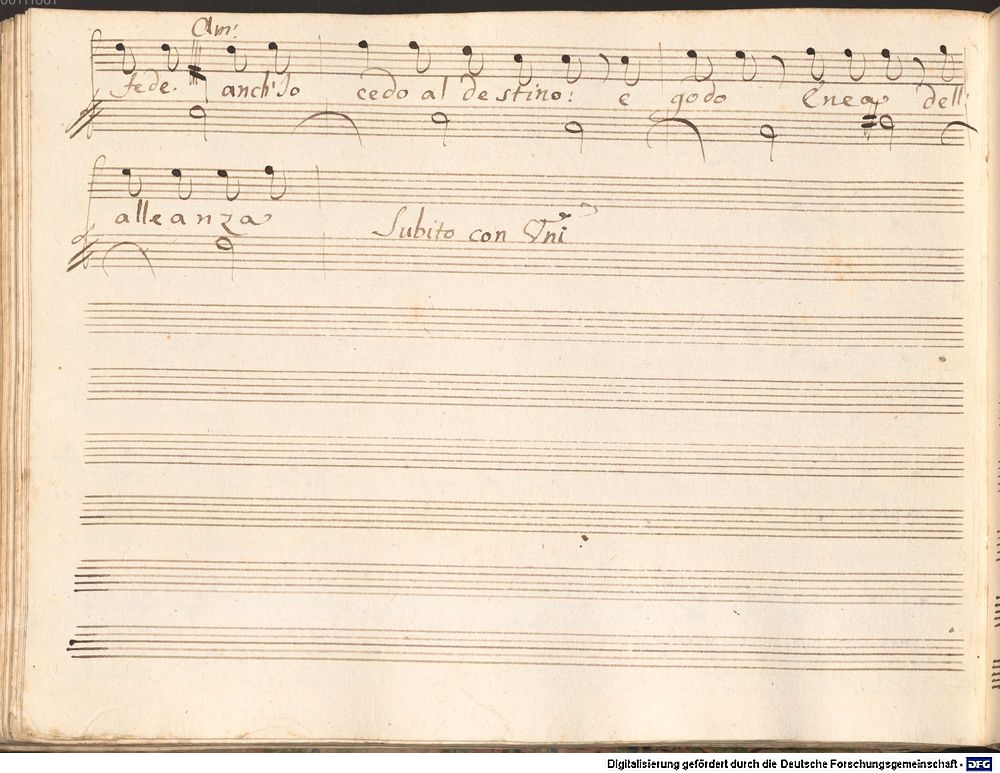 Am:
fede. anch'Io cedo al destino: e godo Enea dell'
alleanza
Subito con Vni
Digitalisierung gefördert durch die Deutsche Forschungsgemeinschaft - DFG